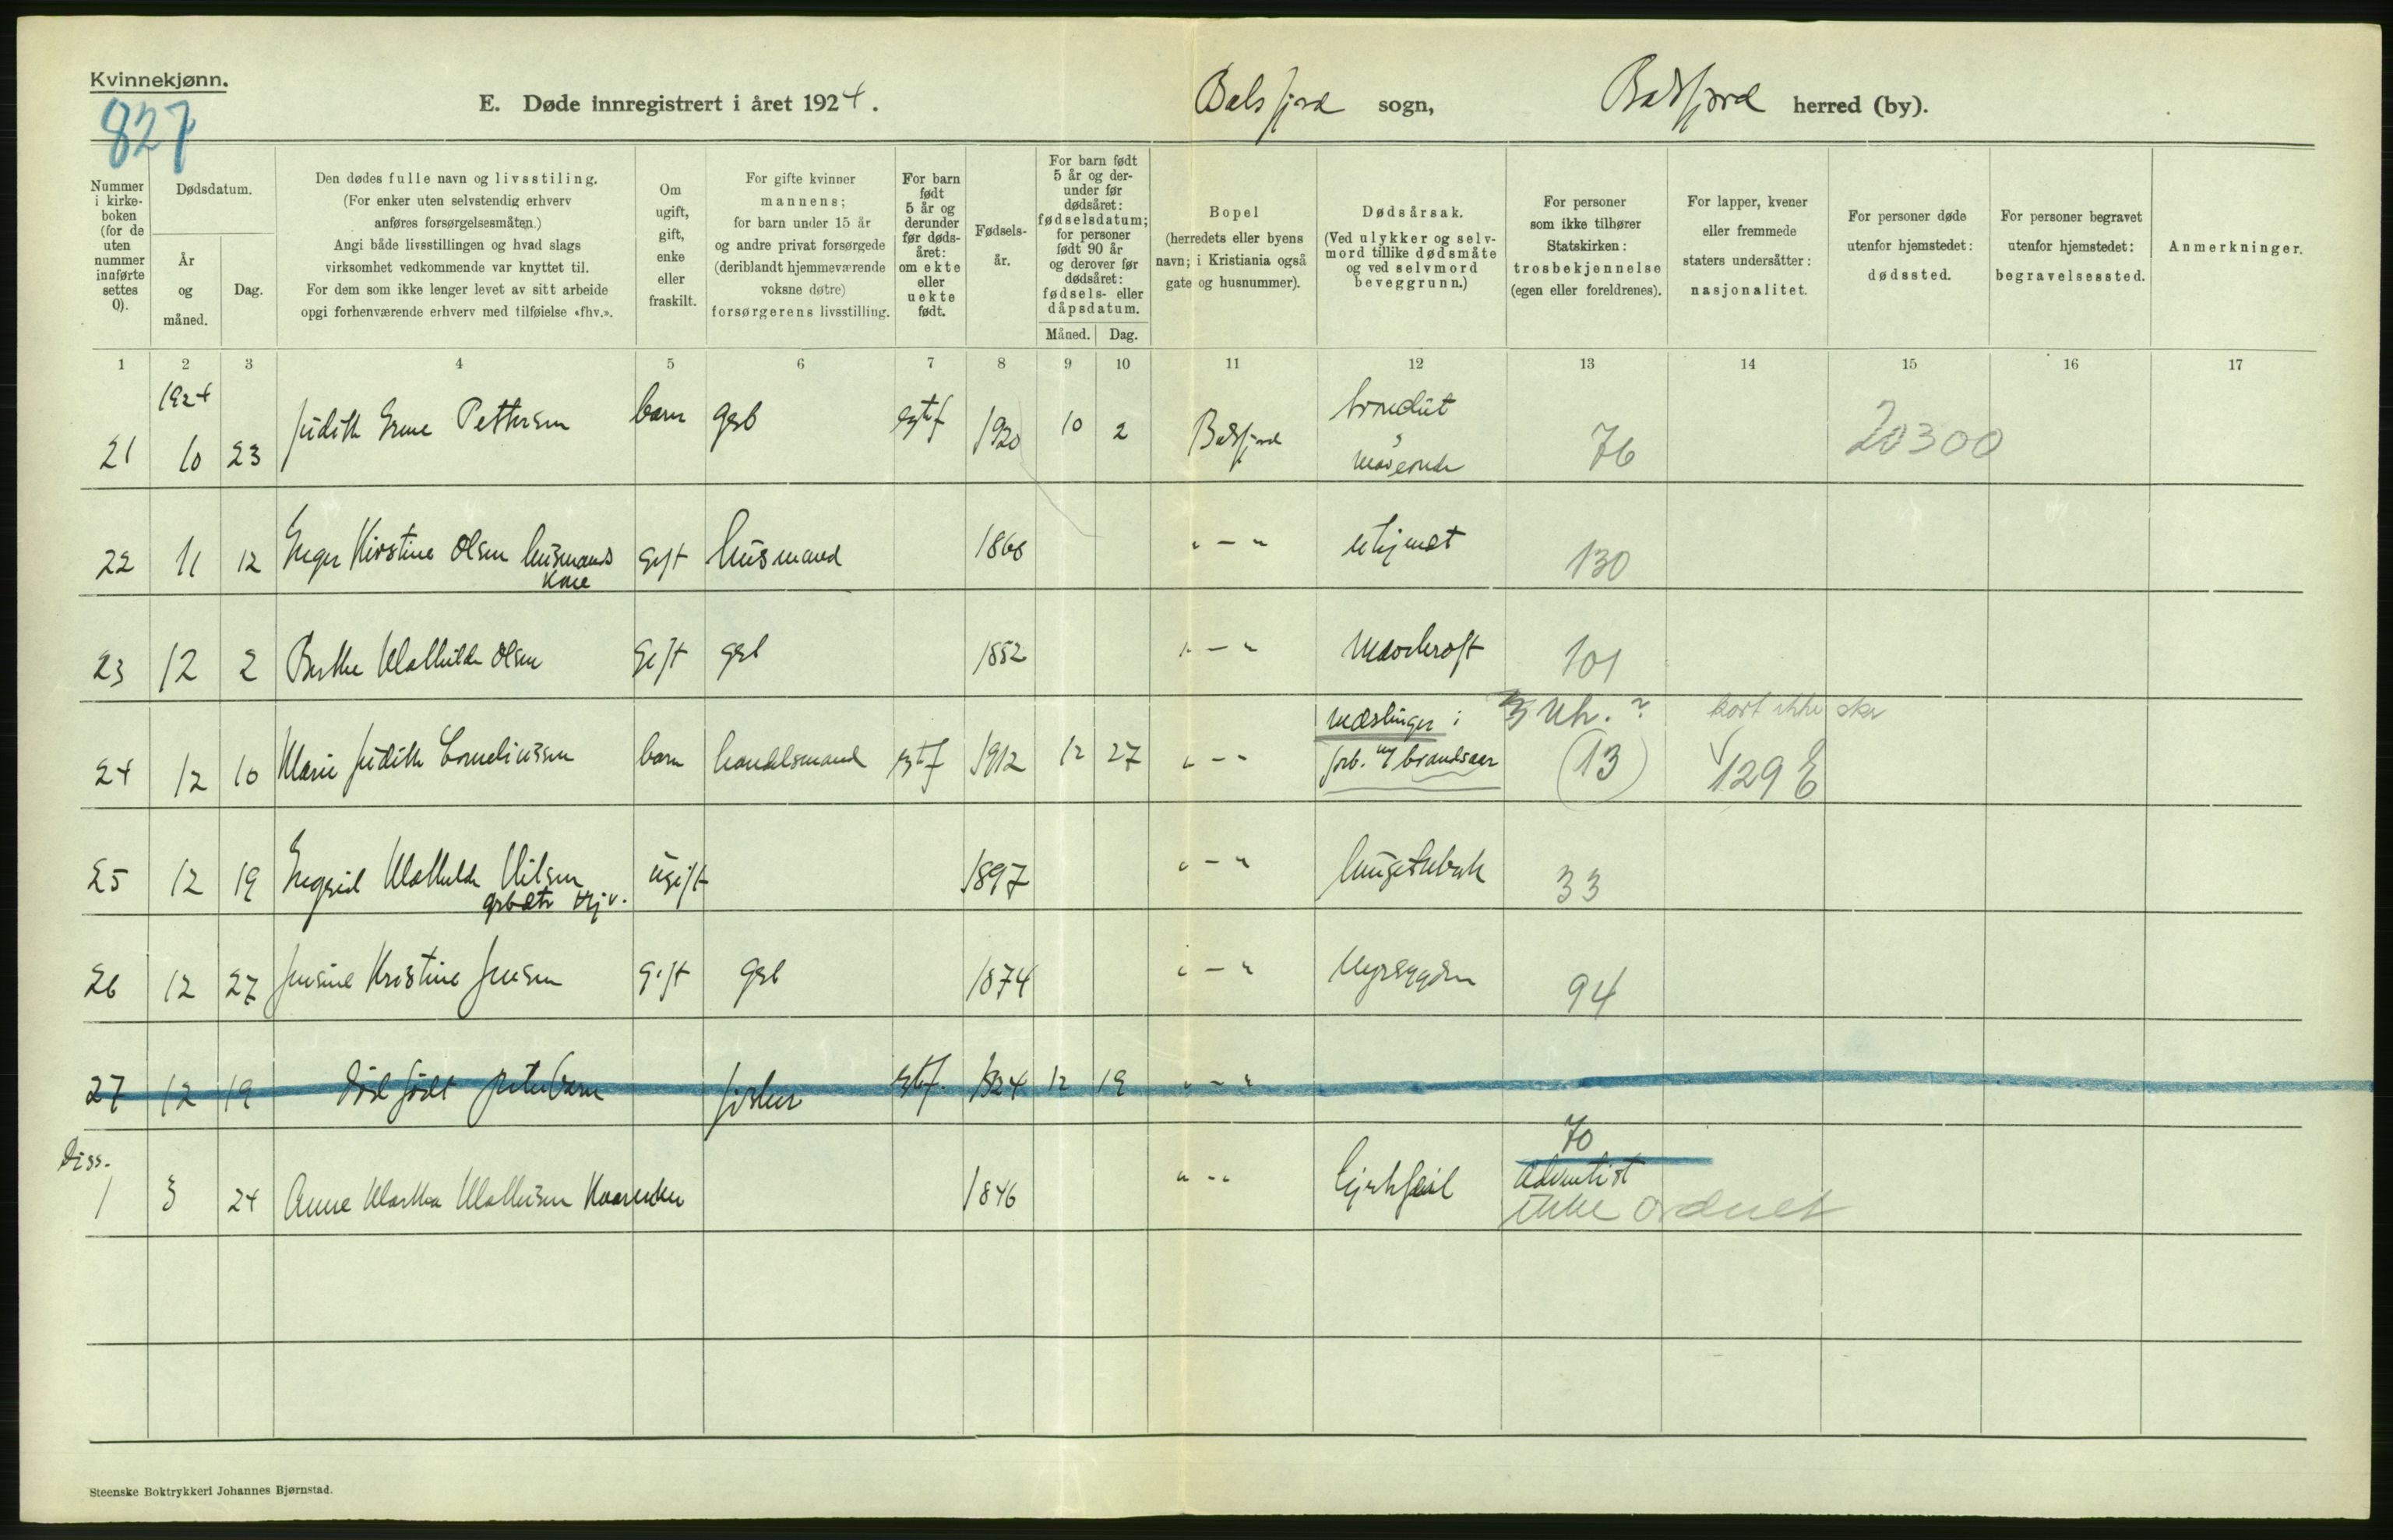 Kvinnekjønn.
827
E. Døde innregistrert i året 1924.
Balsfjord sogn,
Balsfjord herred (by).
Nummer i kirke-boken (for de uten nummer innførte settes 0).
Dødsdatum.
År og måned.
Dag.
Den dødes fulle navn og livsstiling.
(For enker uten selvstendig erhverv
anføres forsørgelsesmåten.)
Angi både livsstillingen og hvad slags
virksomhet vedkommende var knyttet til.
For dem som ikke lenger levet av sitt arbeide
opgi forhenværende erhverv med tilføielse «fhv.».
Om ugift, gift, enke eller fraskilt.
For gifte kvinner
mannens;
for barn under 15 år
og andre privat forsørgede
(deriblandt hjemmeværende
voksne døtre)
forsørgerens livsstilling.
For barn født 5 år og derunder før døds-året: om ekte eller uekte født.
Fødsels-år.
For barn født
5 år og der-
under før
dødsåret:
fødselsdatum;
for personer
født 90 år
og derover før
dødsåret:
fødsels- eller
dåpsdatum.
Måned. Dag.
Bopel
(herredets eller byens
navn; i Kristiania også
gate og husnummer).
Dødsårsak.
(Ved ulykker og selv-
mord tillike dødsmåte
og ved selvmord
beveggrunn.)
For personer
som ikke tilhører
Statskirken:
trosbekjennelse
(egen eller foreldrenes).
For lapper, kvener
eller fremmede
staters undersåtter:
nasjonalitet.
For personer døde
utenfor hjemstedet:
dødssted.
For personer begravet
utenfor hjemstedet:
begravelsessted.
Anmerkninger.
1 2 3 4 5 6 7 8 9 10 11 12 13 14 15 16 17
1924
21 10 23 Judith Irene Pettersen barn gsb 1920 10 2 Balsfjord 76 20300
22 11 12 Inger Kirstine Olsen husmands kone gift husmand 1868 " - " ukjendt 130
23 12 2 Berthe Mathilde Olsen gift gsb 1852 " - " Mavekræft 101
24 12 10 Marie Judith Corneliussen barn handelsmand 1912 12 27 " - " mæslinger i forb. m/ brandsaar (13) kort ikke 129 E
25 12 19 Ingrid Mathilde Nilsen ugift 1897 " - " lungetuberk 33
26 12 27 Jensine Kristine Jensen gift gsb 1874 " - " Nyresygdom 94
27 12 19 død født pikebarn fisker 1924 12 19 " - "
Diss.
1 3 24 Anne Martha Mathisen 1846 " - " hjertefeil 70 Adventist
ikke ordnet
Steenske Boktrykkeri Johannes Bjørnstad.